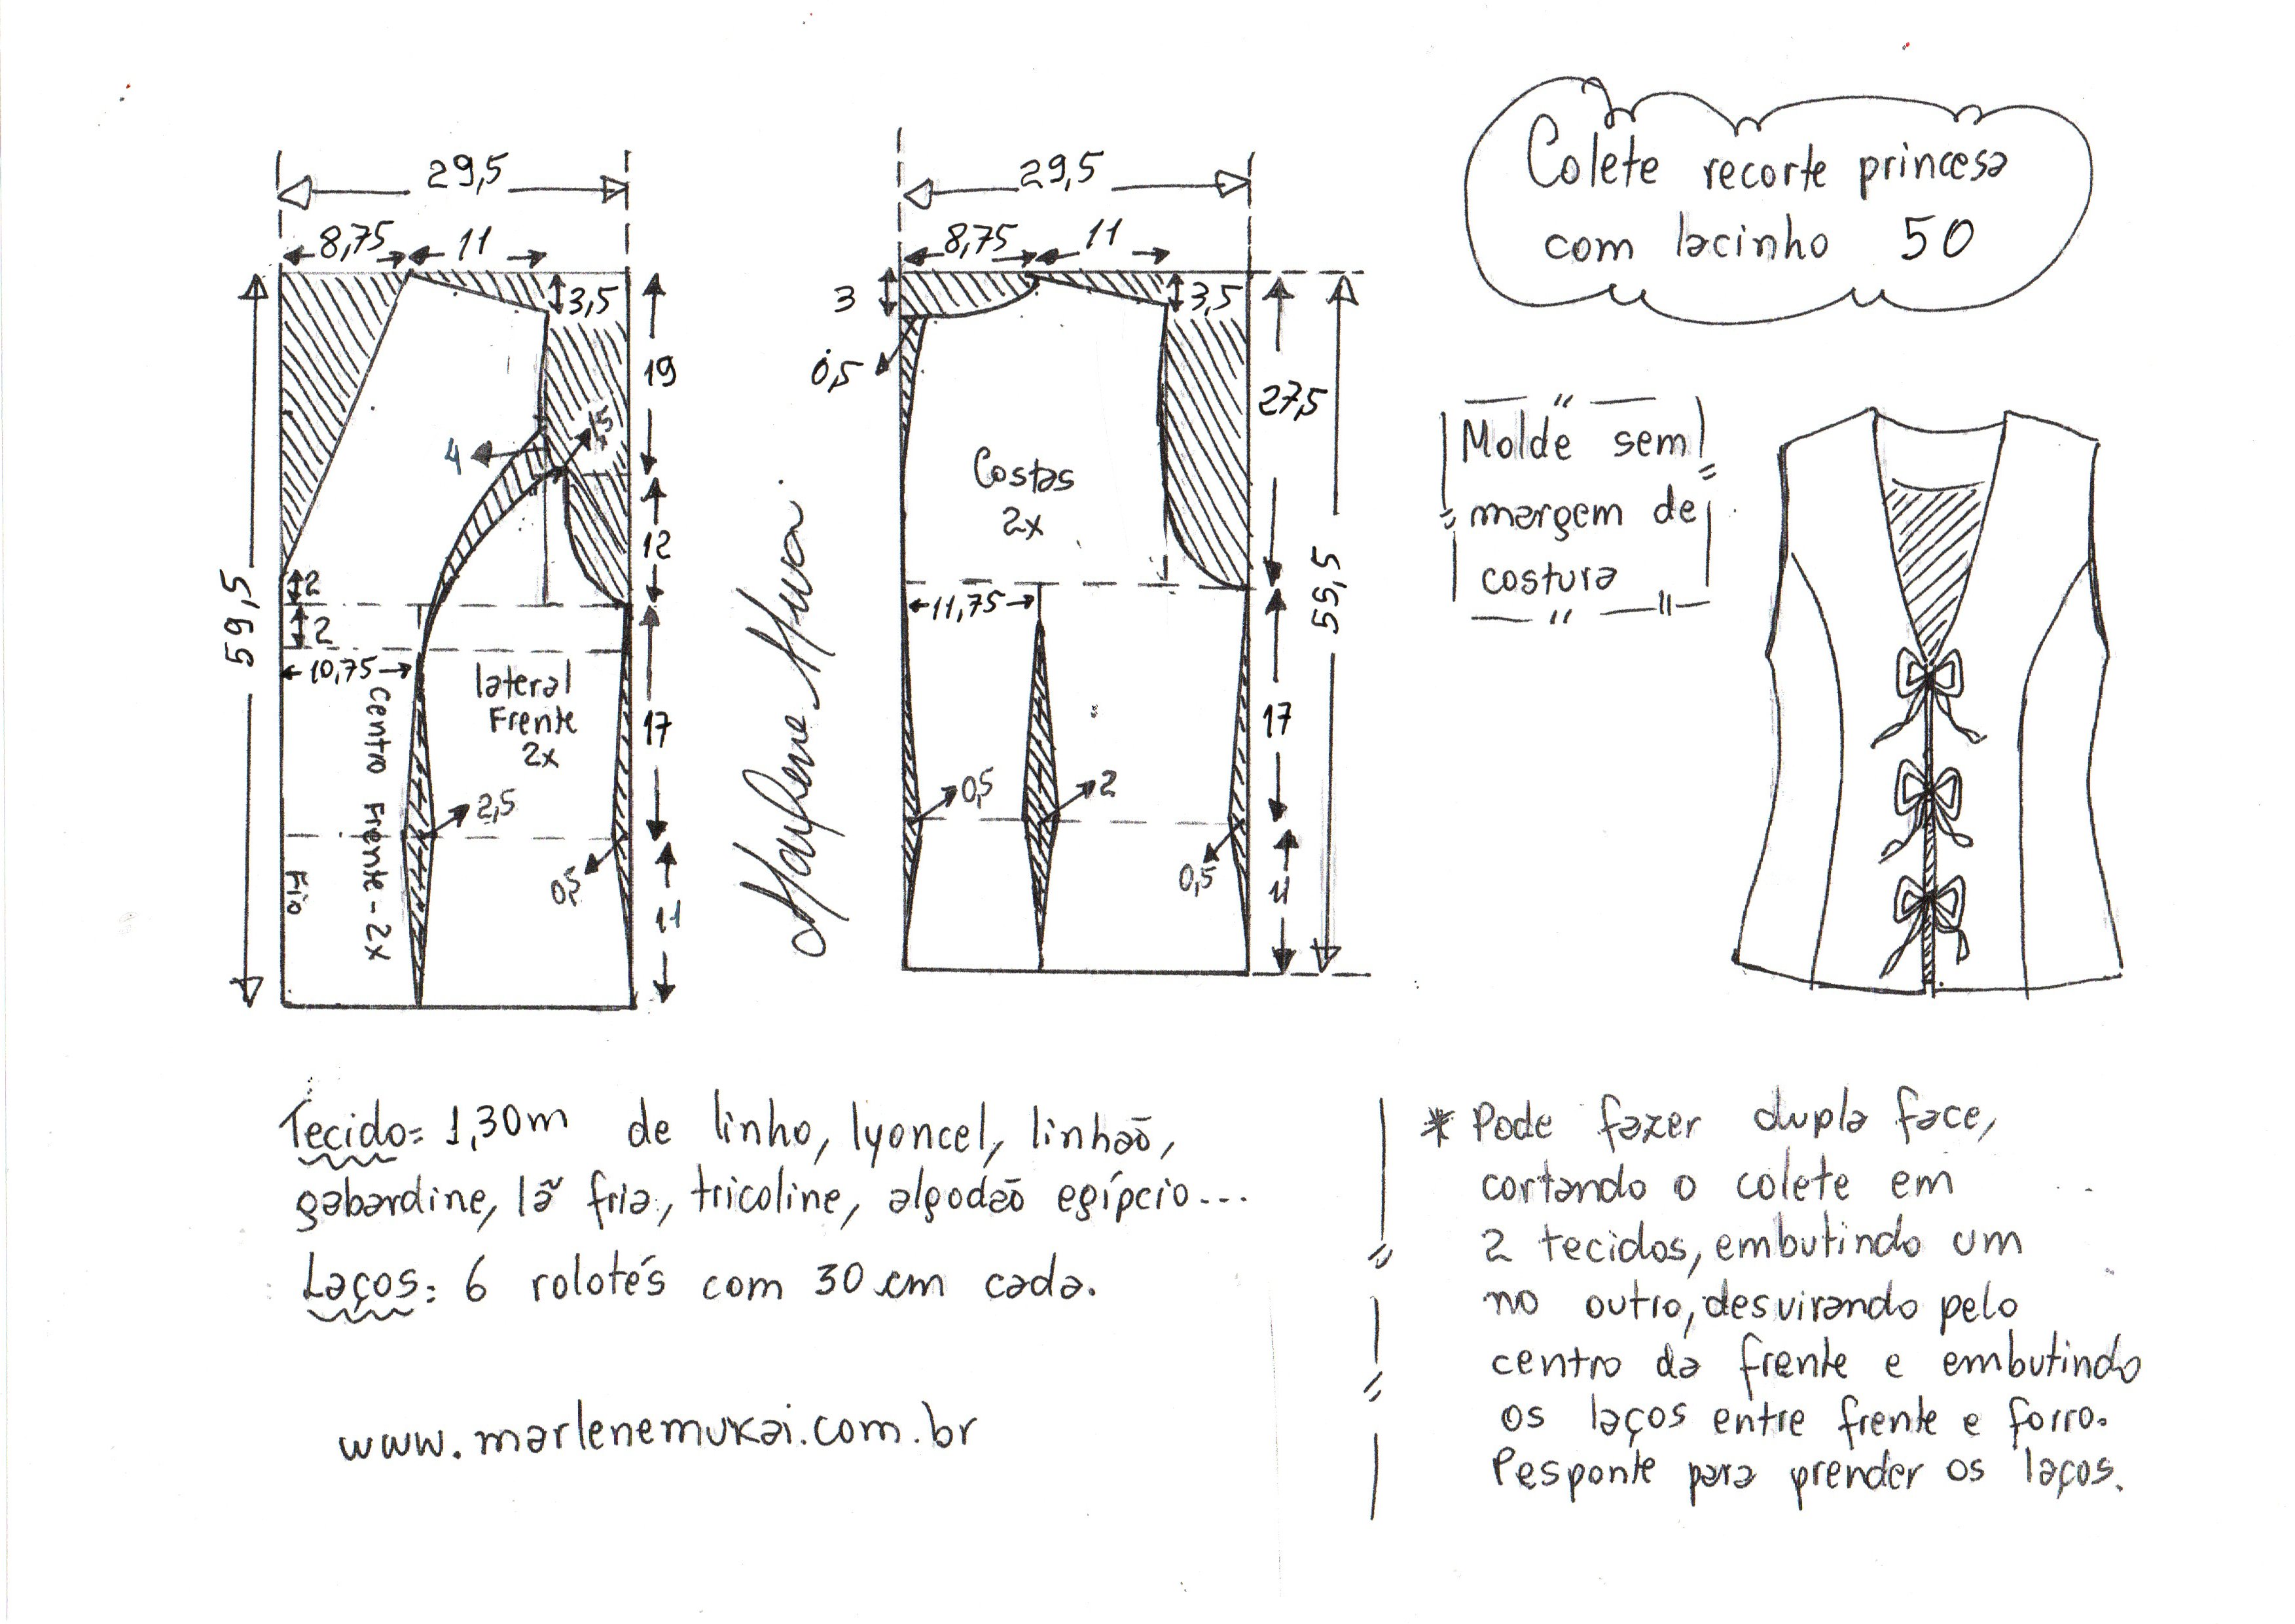 29,5
8,75
11
3,5
19
4
1,5
12
2
2
59,5
10,75
Centro Frente - 2x
lateral
Frente
2x
17
2,5
0,5
Fio
11
29,5
8,75
11
3
3,5
0,5
27,5
Costas
2x
11,75
55,5
17
0,5
2
0,5
11
Colete recorte princesa
com lacinho 50
Molde sem
margem de
costura
Tecido= 1,30m de linho, lyoncel, linhaõ,
gabardine, lã fria, tricoline, algodaõ egípcio...
Laços: 6 rolotés com 30 cm cada.
www.marlenemukai.com.br
* Pode fazer dupla face,
cortando o colete em
2 tecidos, embutindo um
no outro, desvirando pelo
centro da frente e embutindo
os laços entre frente e forro.
Pesponte para prender os laços.